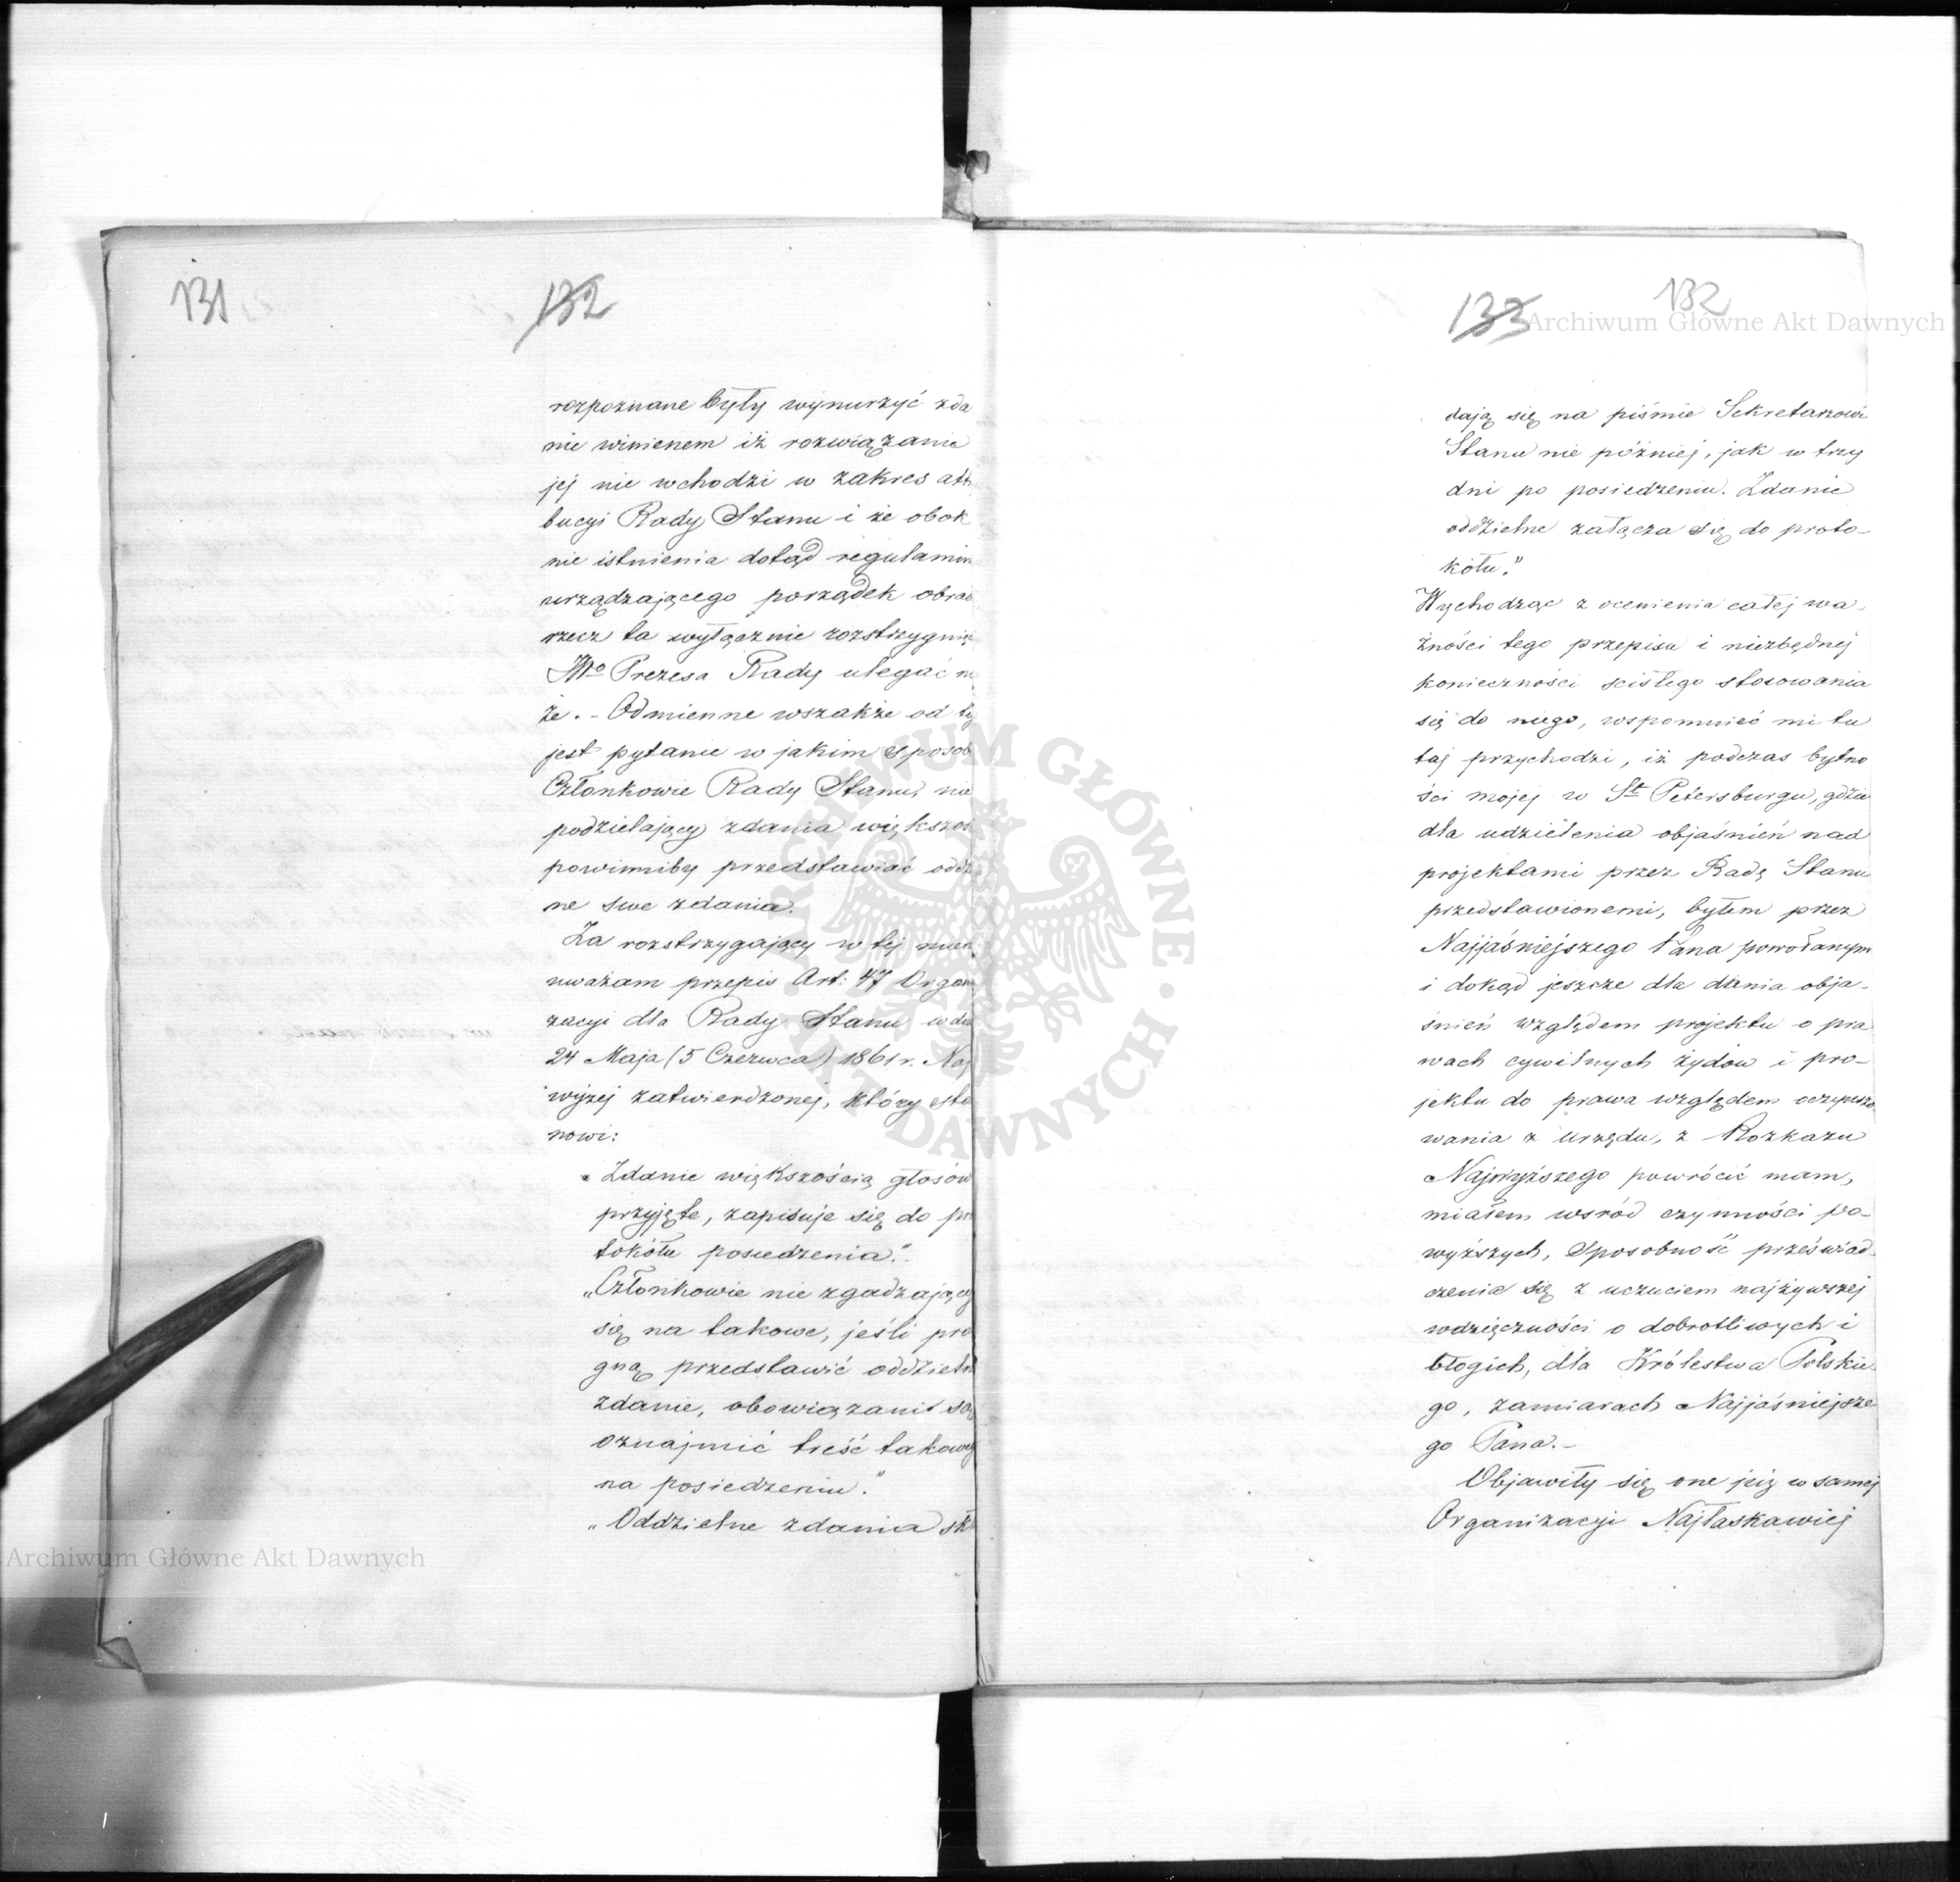 131
132
rozpoznane były wynurzyć zda
nie winienem iż rozwiązanie
jej nie wchodzi w zakres att
bucyi Rady Stanu i że obok
nie istnienia dotąd regulamin
urządzającego porządek obrad
rzecz ta wyłącznie rozstrzygnię
Prezesa Rady ulegać m
że. - Odmienne wszakże od ty
jest pytanie w jakim sposob
Członkowie Rady Stanu, nie
podzielający zdania większoś
powinniby przedstawiać oddz
ne swe zdania.
Za rozstrzygający w tej
uważam przepis Art: 47 Organi
zacyi dla Rady Stanu w dn
24 Maja (5 Czerwca) 1861 r. Naj
wyżej zatwierdzonej, który sta
nowi:
„Zdanie większością głosów
przyjęte, zapisuje się do pro
tokółu posiedzenia."
„Członkowie nie zgadzający
się na takowe, jeśli pra
gną przedstawić oddzieln
zdanie, obowiązani są
oznajmić treść takowej
na posiedzeniu."
„Oddzielne zdania skł
133
132
dają się na piśmie Sekretarzowi
Stanu nie później, jak w trzy
dni po posiedzeniu. Zdanie
oddzielne załącza się do proto-
kółu."
Wychodząc z ocenienia całej wa-
żności tego przepisu i niezbędnej
konieczności scisłego stosowania
się do niego, wspomnieć mi tu
taj przychodzi, iż podczas bytno
ści mojej w St Petersburgu, gdzie
dla udzielenia objaśnień nad
projektami przez Radę Stanu
przedstawionemi, byłem przez
Najjaśniejszego Pana powołanym
i dokąd jeszcze dla dania obja-
śnień względem projektu o pra
wach cywilnych żydów i pro-
jektu do prawa względem oczynszo
wania z urzędu, z Rozkazu
Najwyższego powrócić mam,
miałem wsród czynności po-
wyższych, sposobność przeświad-
czenia się z uczuciem najżywszej
wdzięczności o dobrotliwych i
błogich, dla Królestwa Polskie-
go, zamiarach Najjaśniejsze
go Pana.-
Objawiły się one już w samej
Organizacyi Najłaskawiej
Archiwum Główne Akt Dawnych
Archiwum Główne Akt Dawnych
ARCHIWUM GŁÓWNE AKT DAWNYCH